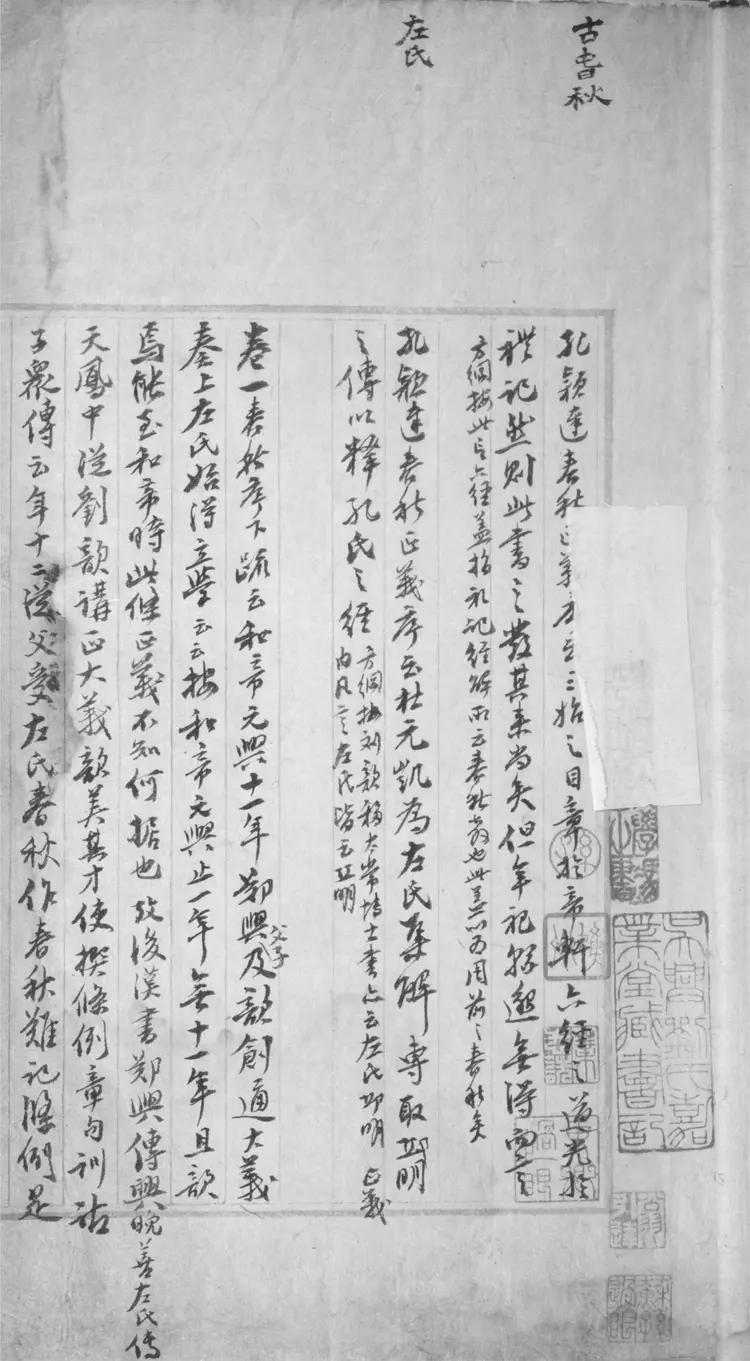 古春秋
左氏
孔穎達春秋正義序云三始之目章於帝軒六經之道光於
禮記然則此書之發其來尚矣但年祀緜邈無得而言
方綱按此言六經蓋指禮記經解所云春秋教也此蓋以為用前之春秋矣
孔穎達春秋正義序云杜元凱為左氏集解專取邱明
之傳以釋孔氏之經
方綱按劉歆移太常博士書亦云左氏邱明 正義
內凡言左氏皆云丘明
卷一春秋序下疏云和帝元興十一年鄭興父子及歆創通大義
奏上左氏始得立學云云按和帝元興止一年無十一年且歆
焉能至和帝時此條正義不知何据也攷後漢書鄭興傳興晚善左氏傳
天鳳中從劉歆講正大義歆美其才使撰條例章句訓詁
子衆傳云年十二從父受左氏春秋作春秋難記條例是
吳興劉氏嘉
業堂藏書記